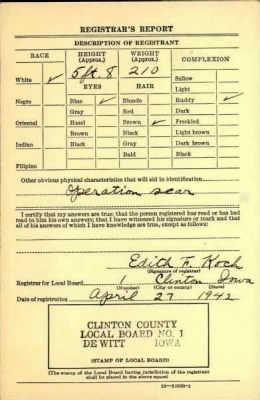 REGISTRAR'S REPORT
DESCRIPTION OF REGISTRANT
RACE HEIGHT (Approx.) WEIGHT (Approx.) COMPLEXION
White ✓ 5 ft. 8 210 Sallow
EYES HAIR Light
Negro Blue ✓ Blonde Ruddy ✓
Gray Red Dark
Oriental Hazel Brown ✓ Freckled
Brown Black Light brown
Indian Black Gray Dark brown
Bald Black
Filipino
Other obvious physical characteristics that will aid in identification
Operation scar
I certify that my answers are true; that the person registered has read or has had
read to him his own answers; that I have witnessed his signature or mark and that
all of his answers of which I have knowledge are true, except as follows:
Edith F. Koch
(Signature of registrar)
Registrar for Local Board 1 Clinton Iowa
(Number) (City or county) (State)
Date of registration April 27 1942
CLINTON COUNTY
LOCAL BOARD NO. 1
DE WITT IOWA
(STAMP OF LOCAL BOARD)
(The stamp of the Local Board having jurisdiction of the registrant
shall be placed in the above space)